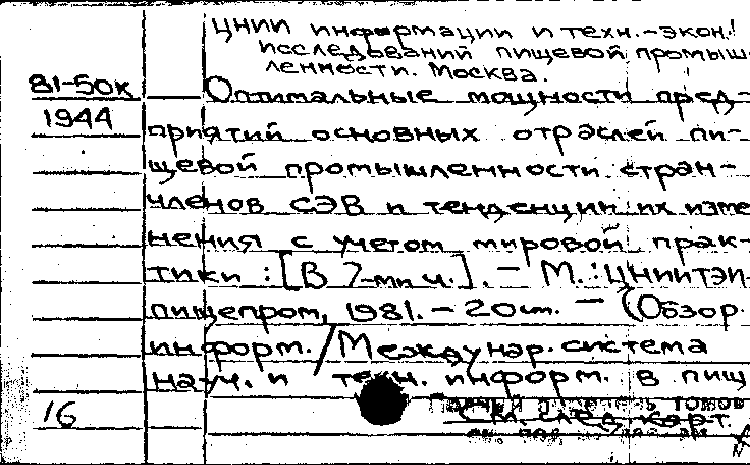 ЦНИИ информации и техн.-экон.
исследований пищевой промыш-
ленности. Москва.
81-50к
Оптимальные мощности пред-
1944
приятий основных отраслей пи-
щевой промышленности стран-
членов СЭВ и тенденции их изме
нения с учетом мировой прак-
тики : [В 7-ми ч.]. – М.: ЦНИИТЭИ-
пищепром, 1981. – 20 см. – (Обзор.
информ. / Междунар. система
науч. и техн. информ. в пищ
16
См. след. карт.